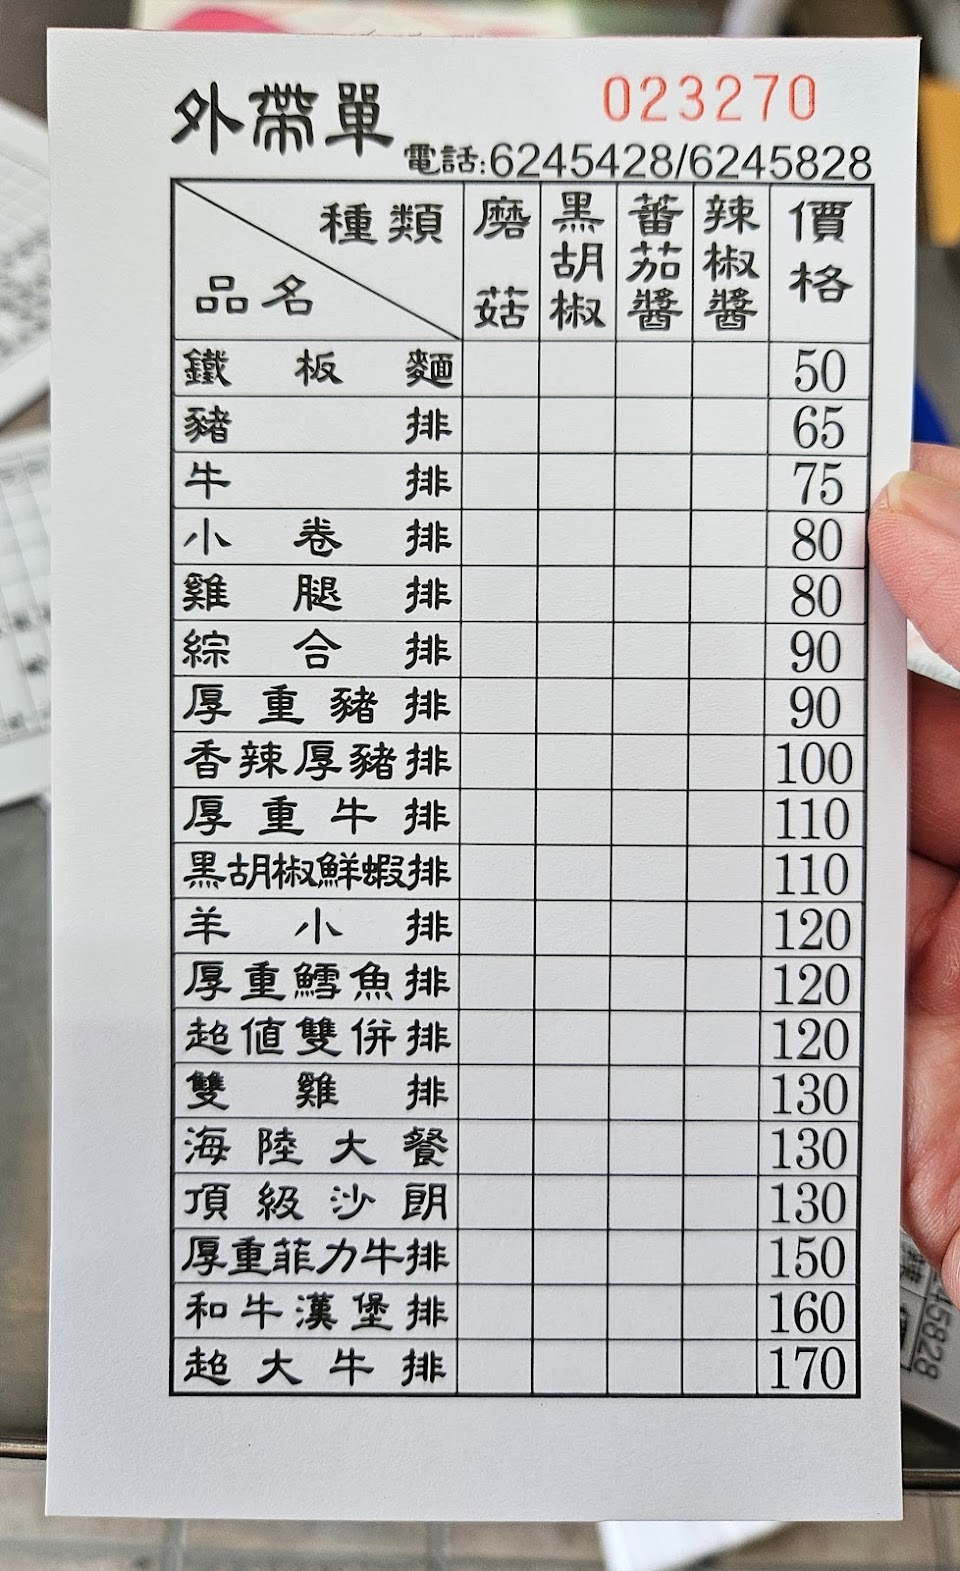 外帶單 023270
電話:6245428/6245828
種類 品名 磨菇 黑胡椒 蕃茄醬 辣椒醬 價格
鐵板麵 50
豬排 65
牛排 75
小卷排 80
雞腿排 80
綜合排 90
厚重豬排 90
香辣厚豬排 100
厚重牛排 110
黑胡椒鮮蝦排 110
羊小排 120
厚重鱈魚排 120
超值雙併排 120
雙雞排 130
海陸大餐 130
頂級沙朗 130
厚重菲力牛排 150
和牛漢堡排 160
超大牛排 170
45828